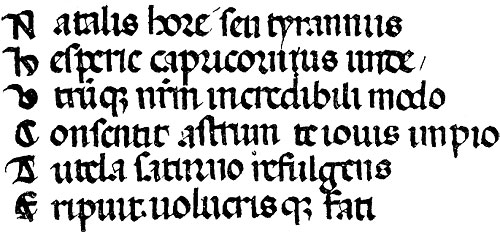 N atalis hore seu tyrannus
h esperie capricornus unde /
v trūq; nrm̄ incredibili modo
C onsentit astrum te iouis impio
T utela saturno refulgens
E ripuit. uolucrisq; fati